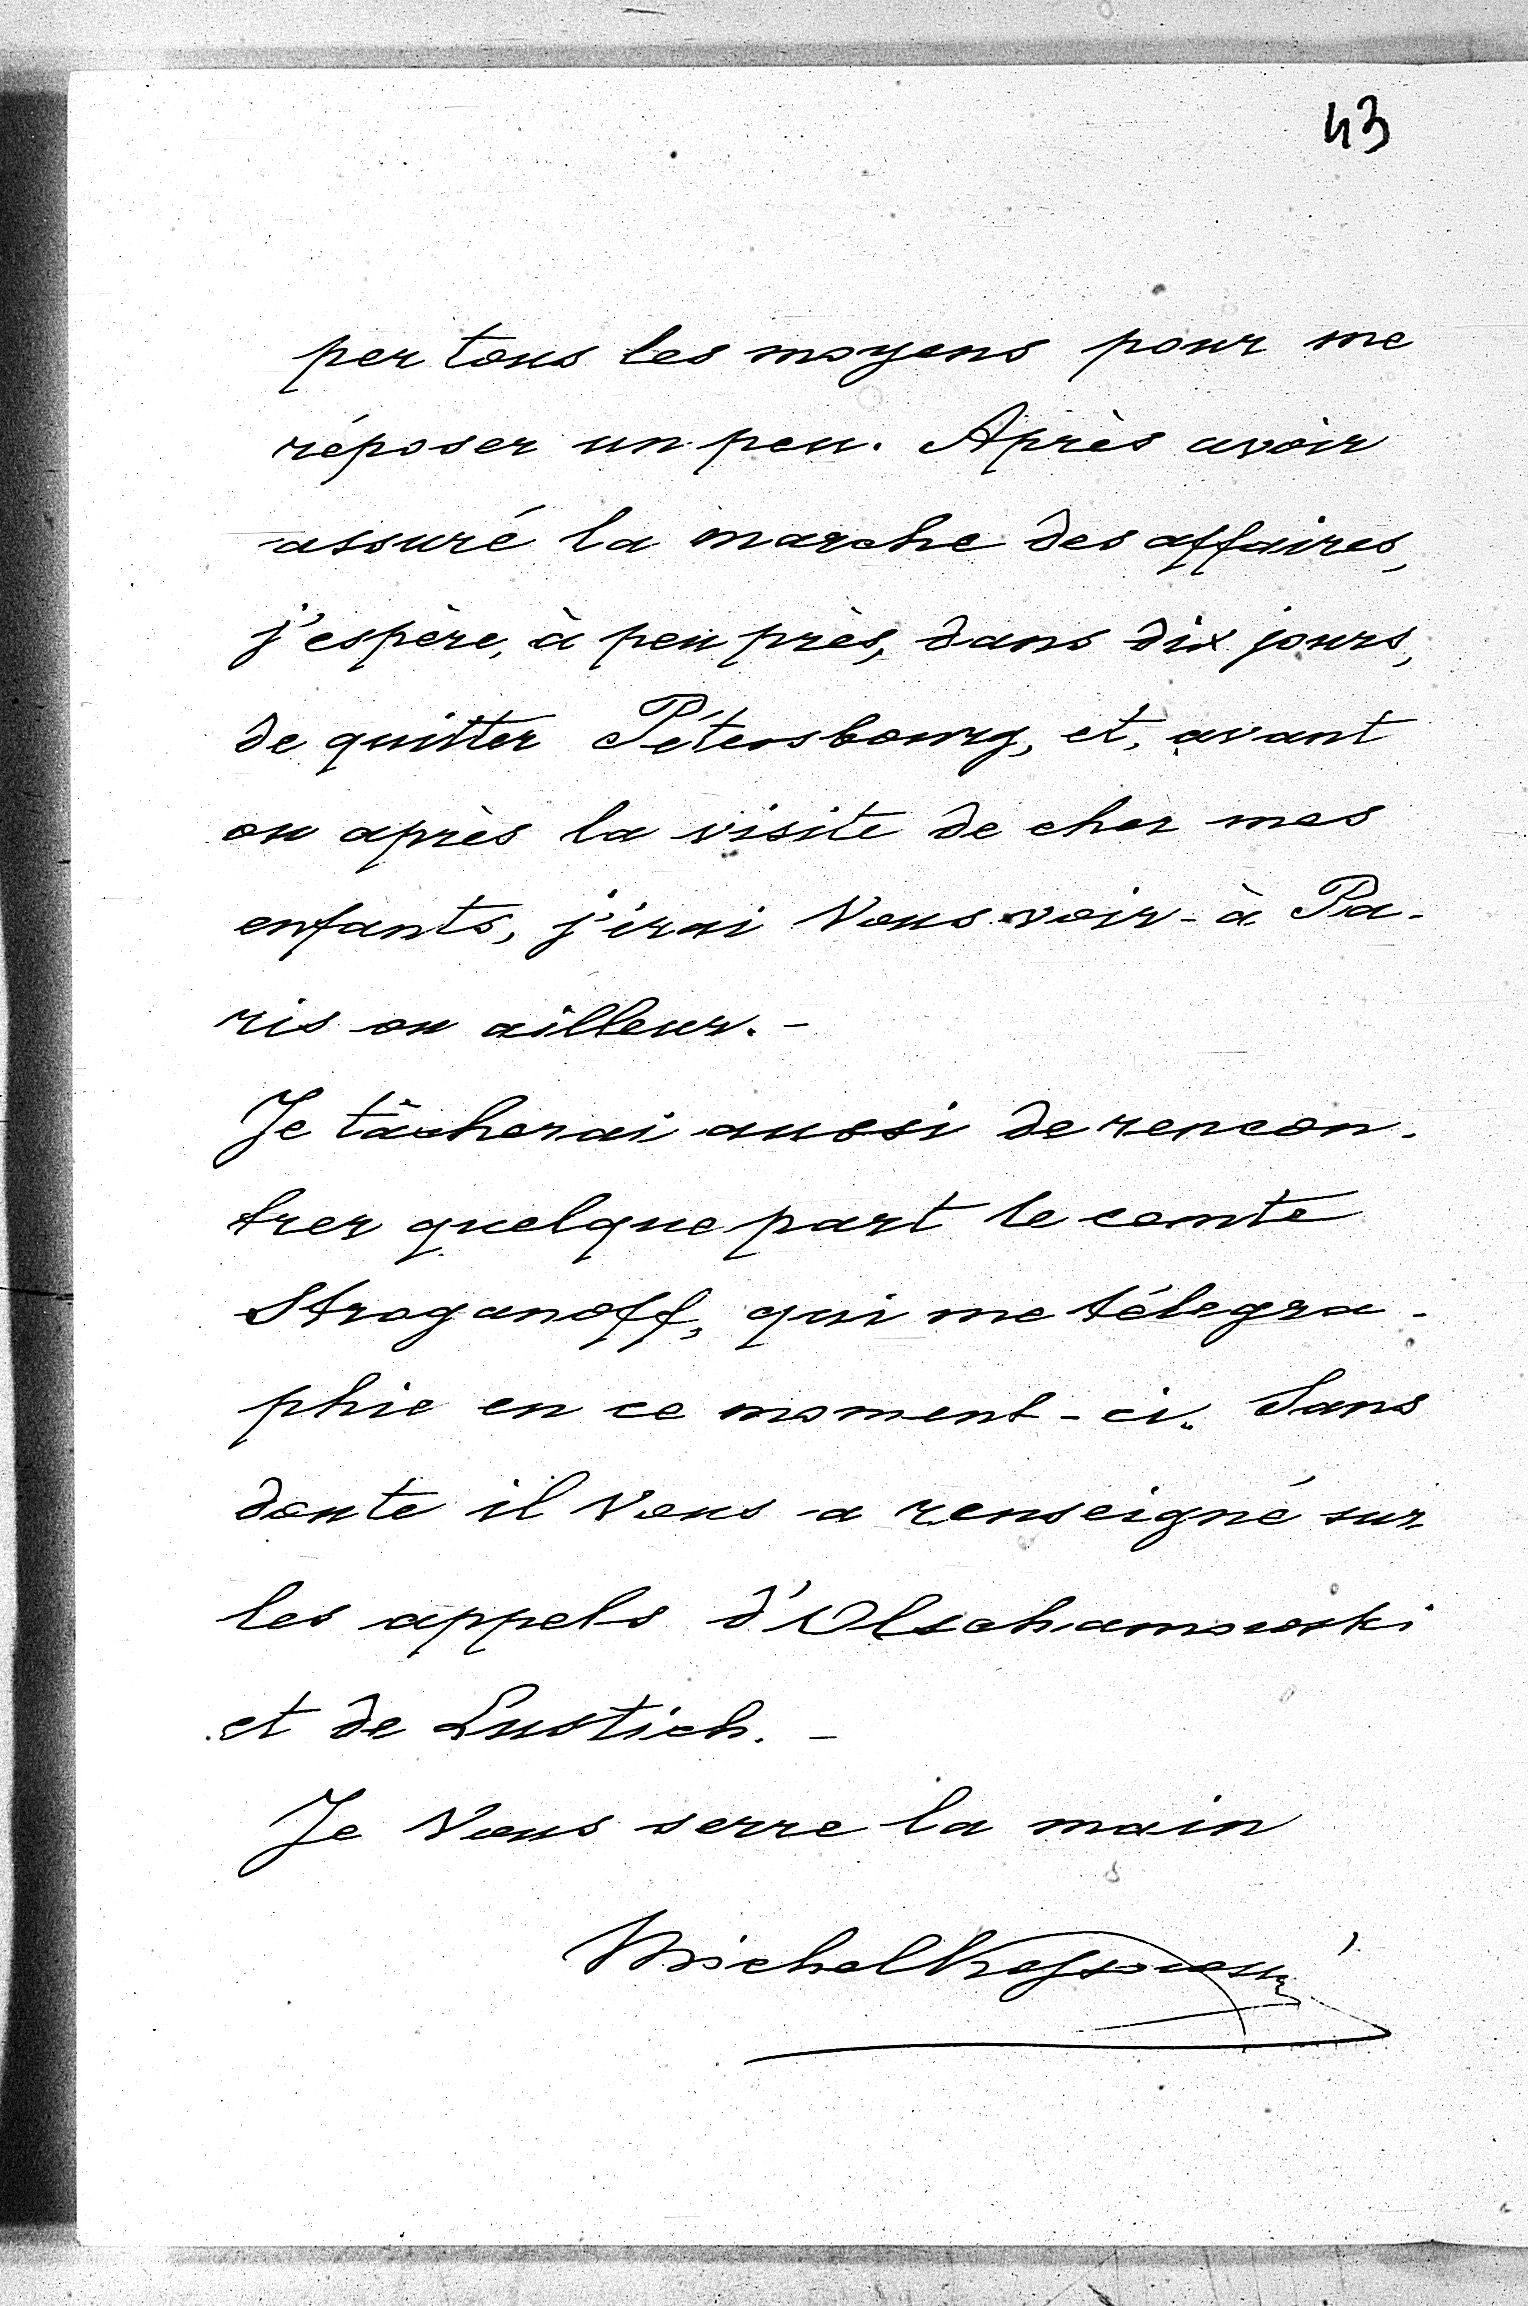 43
per tous les moyens pour me
réposer un peu. Après avoir
assuré la marche des affaires,
j'espère, à peu près, dans dix jours,
de quitter Pétersbourg, et, avant
ou après la visite de cher mes
enfants, j'irai Vous voir - à Pa-
ris ou ailleur. -
Je tâcherai aussi de rencon-
trer quelque part le comte
Stroganoff, qui me télegra-
phie en ce moment-ci. Sans
doute il Vous a renseigné sur
les appels d'Olschamowski
et de Lustich. -
Je Vous serre la main
Michel